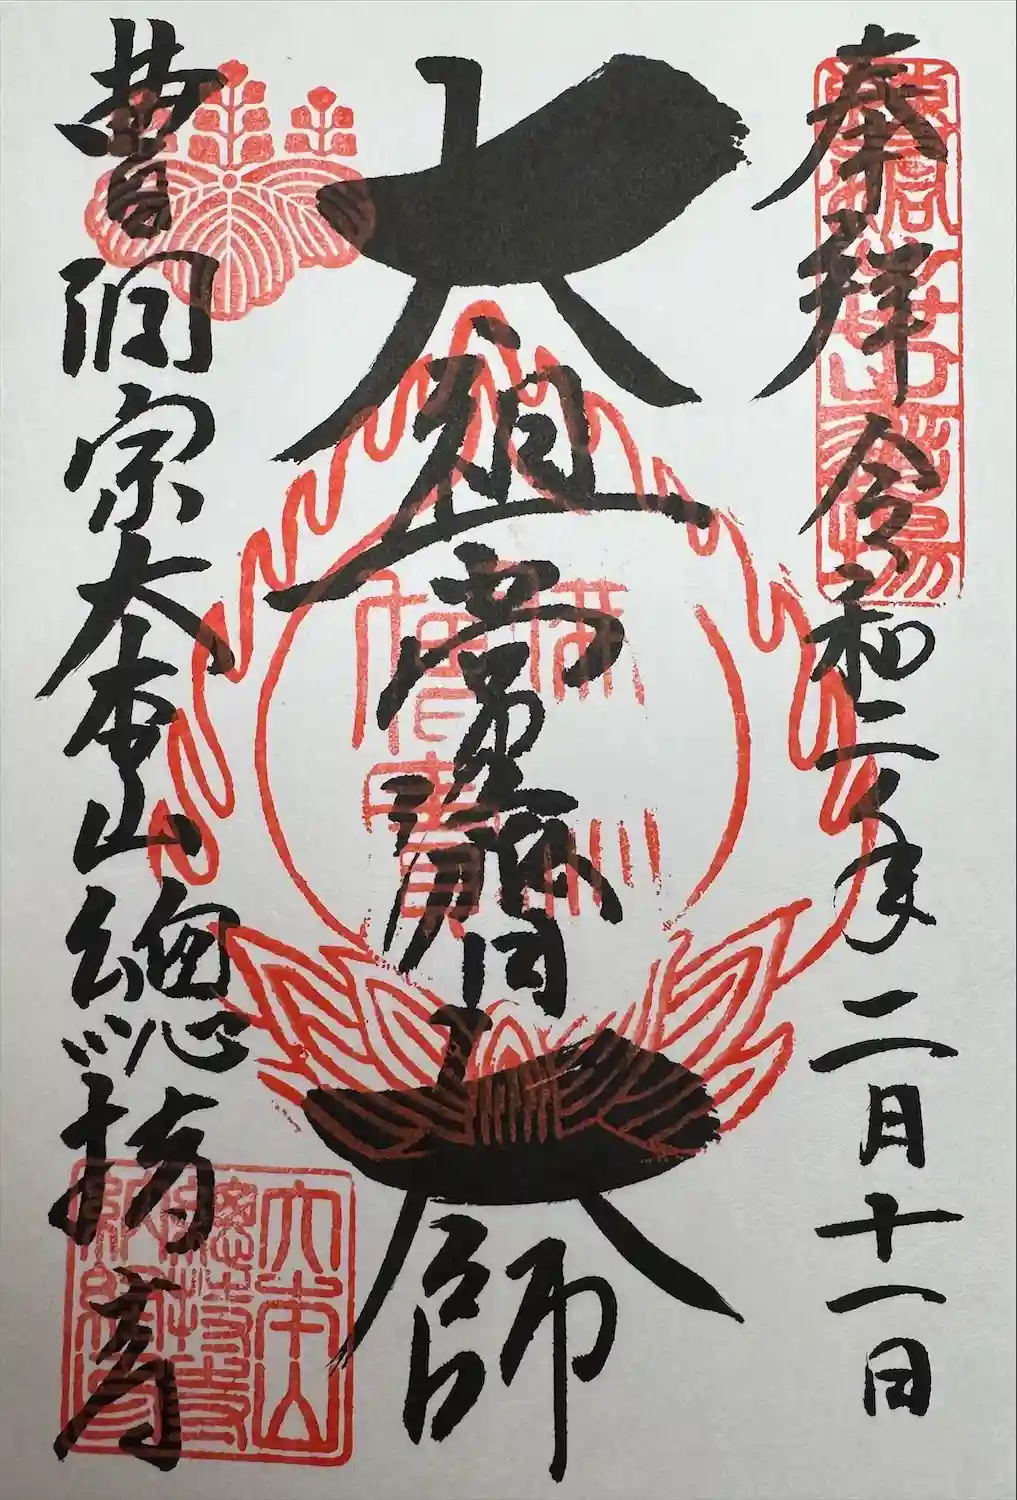 奉拝 令和二年二月十一日
大祖常濟大師
佛法
僧寶
曹洞宗大本山總持寺
大本山
總持寺